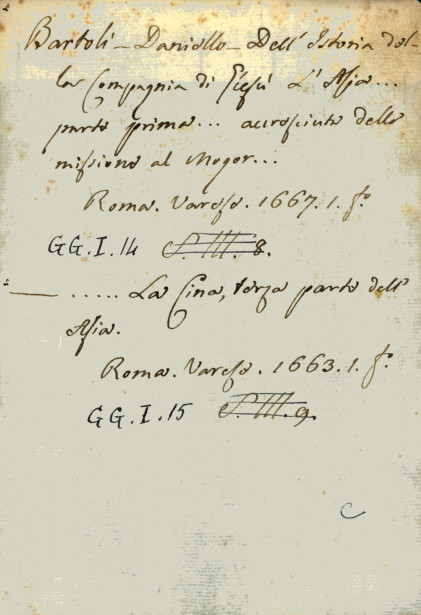 Bartoli - Daniello - Dell' Istoria del-
la Compagnia di Giesù L' Asia...
parte prima... accresciuta della
missione al Mogor...
Roma. Varese. 1667. 1. fo.
GG.I.14 S.III.8.
— ..... La Cina, terza parte dell'
Asia.
Roma. Varese. 1663. 1. fo.
GG.I.15 S.III.9.
C